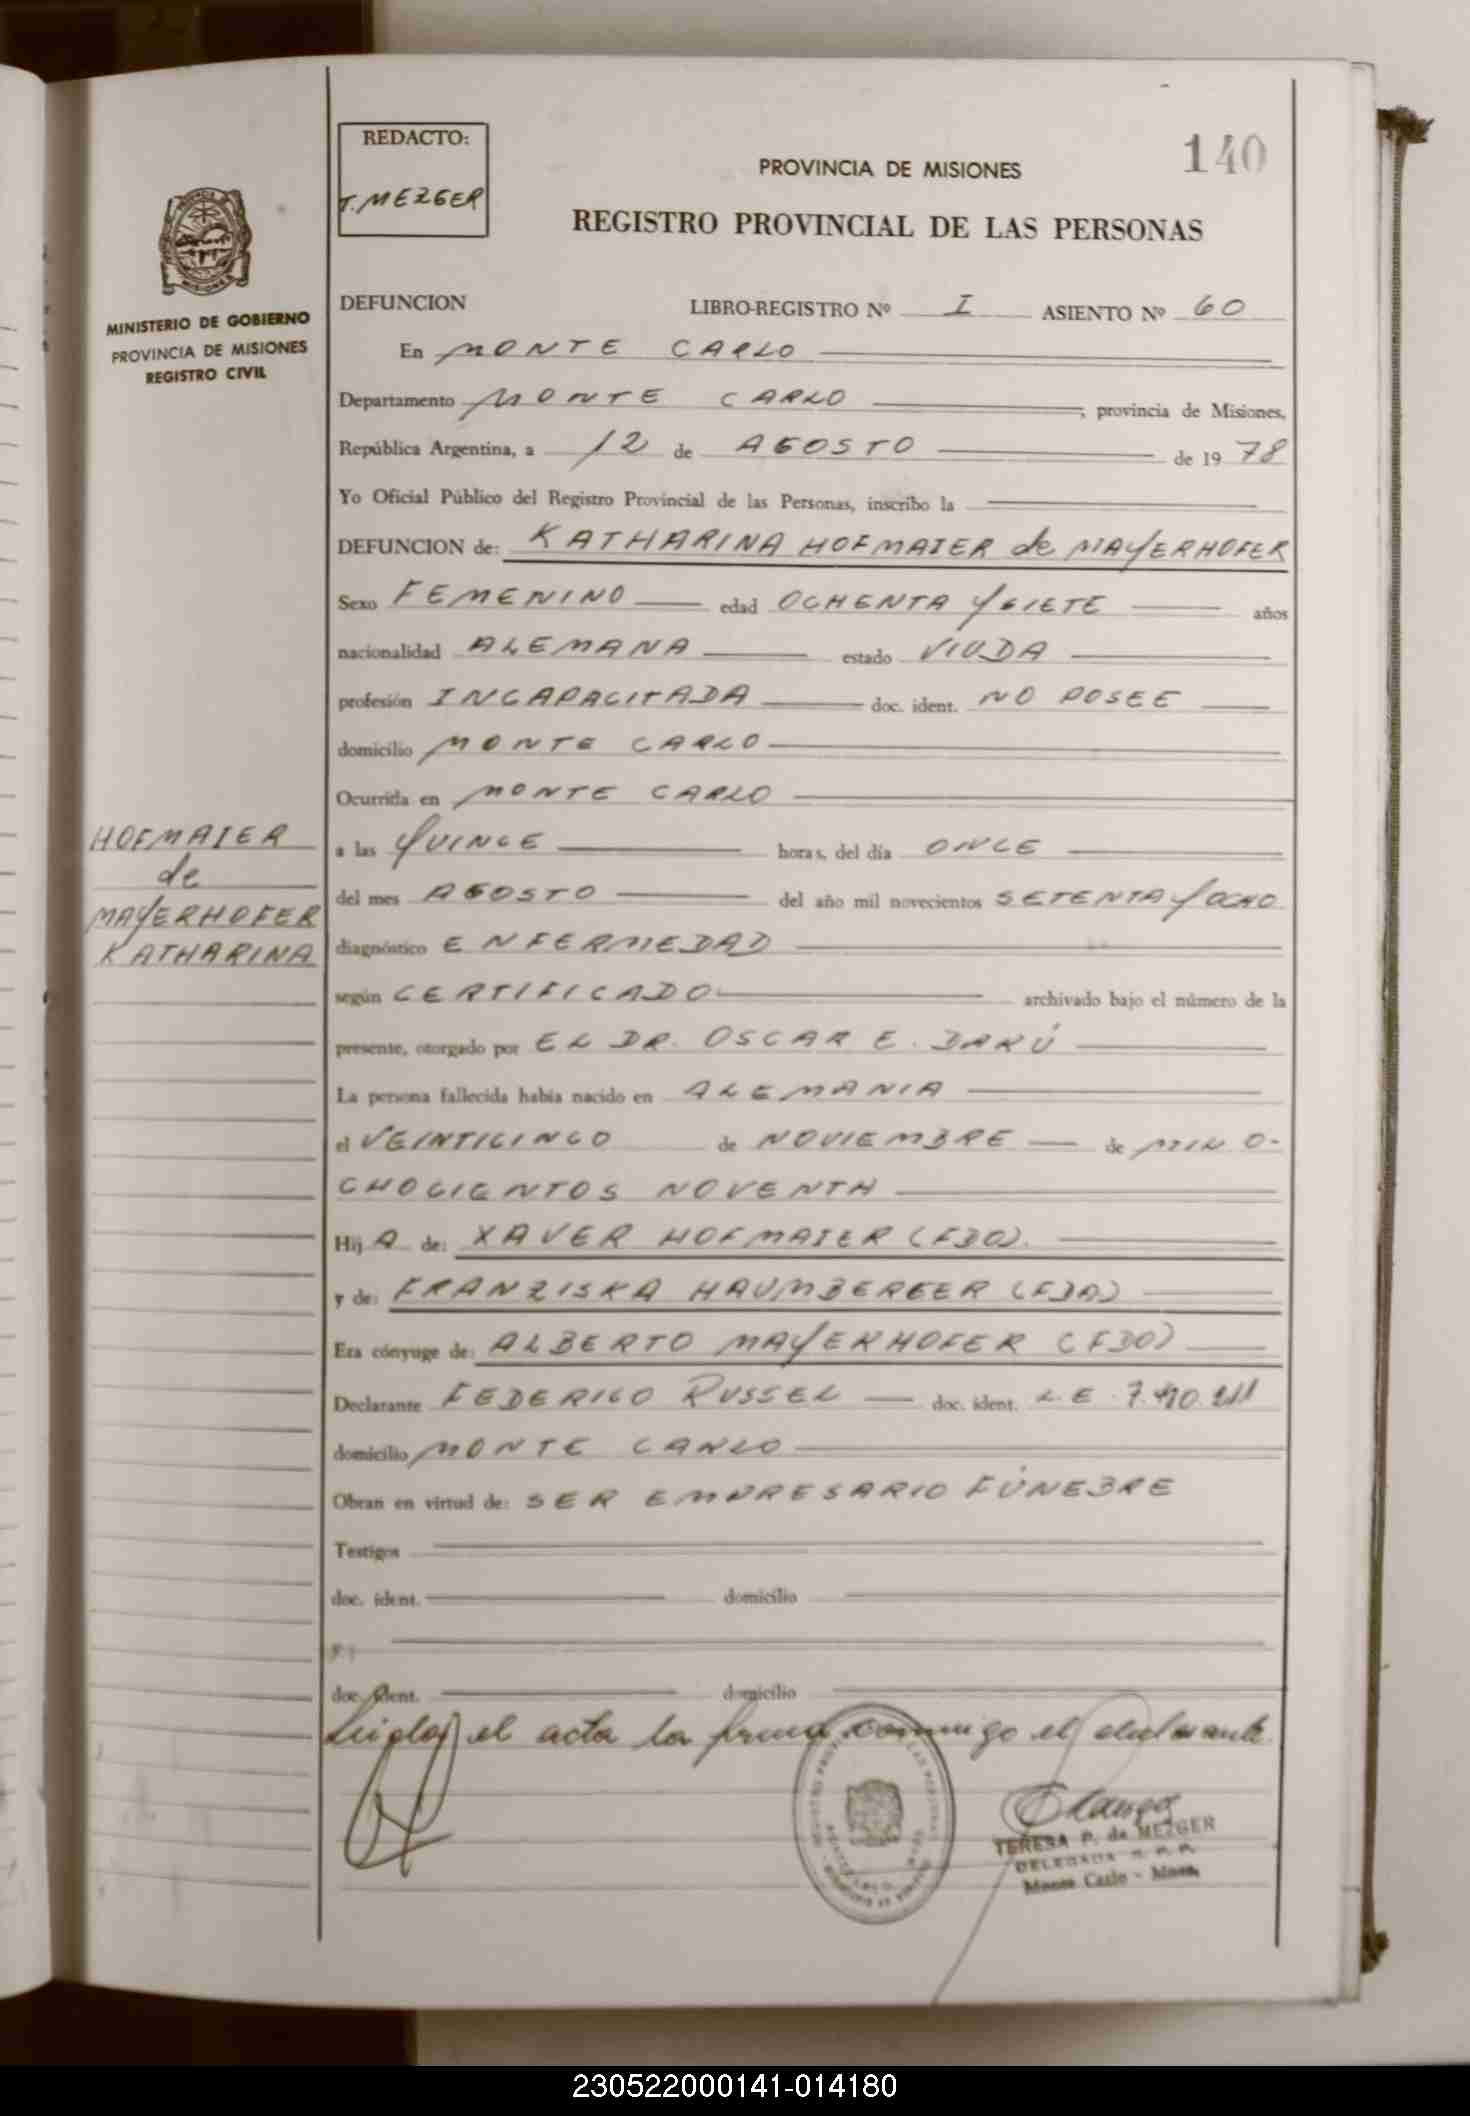 140
REDACTO:
T. MEZGER
PROVINCIA DE MISIONES
REGISTRO PROVINCIAL DE LAS PERSONAS
MINISTERIO DE GOBIERNO
PROVINCIA DE MISIONES
REGISTRO CIVIL
DEFUNCION LIBRO-REGISTRO Nº I ASIENTO Nº 60
En MONTE CARLO
Departamento MONTE CARLO, provincia de Misiones,
República Argentina, a 12 de AGOSTO de 19 78
Yo Oficial Público del Registro Provincial de las Personas, inscribo la
DEFUNCION de: KATHARINA HOFMAIER de MAYERHOFER
Sexo FEMENINO edad OCHENTA Y SIETE años
nacionalidad ALEMANA estado VIUDA
profesión INCAPACITADA doc. ident. NO POSEE
domicilio MONTE CARLO
Ocurrida en MONTE CARLO
HOFMAIER
de
MAYERHOFER
KATHARINA
a las QUINCE horas, del día ONCE
del mes AGOSTO del año mil novecientos SETENTA Y OCHO
diagnóstico ENFERMEDAD
según CERTIFICADO archivado bajo el número de la
presente, otorgado por EL DR. OSCAR E. DARÚ
La persona fallecida había nacido en ALEMANIA
el VEINTICINCO de NOVIEMBRE de MIL O-
CHOCIENTOS NOVENTA
Hij A de: XAVER HOFMAIER (FDO).
y de: FRANZISKA HAUMBERGER (FDA)
Era cónyuge de: ALBERTO MAYERHOFER (FDO)
Declarante FEDERICO RUSSEL doc. ident. L.E.
domicilio MONTE CARLO
Obran en virtud de: SER EMPRESARIO FÚNEBRE
Testigos
doc. ident. domicilio
y
doc. ident. domicilio
Leída el acta la firma conmigo el declarante
TERESA P. de MEZGER
DELEGADA R. P. P.
Monte Carlo - Mnes.
230522000141-014180